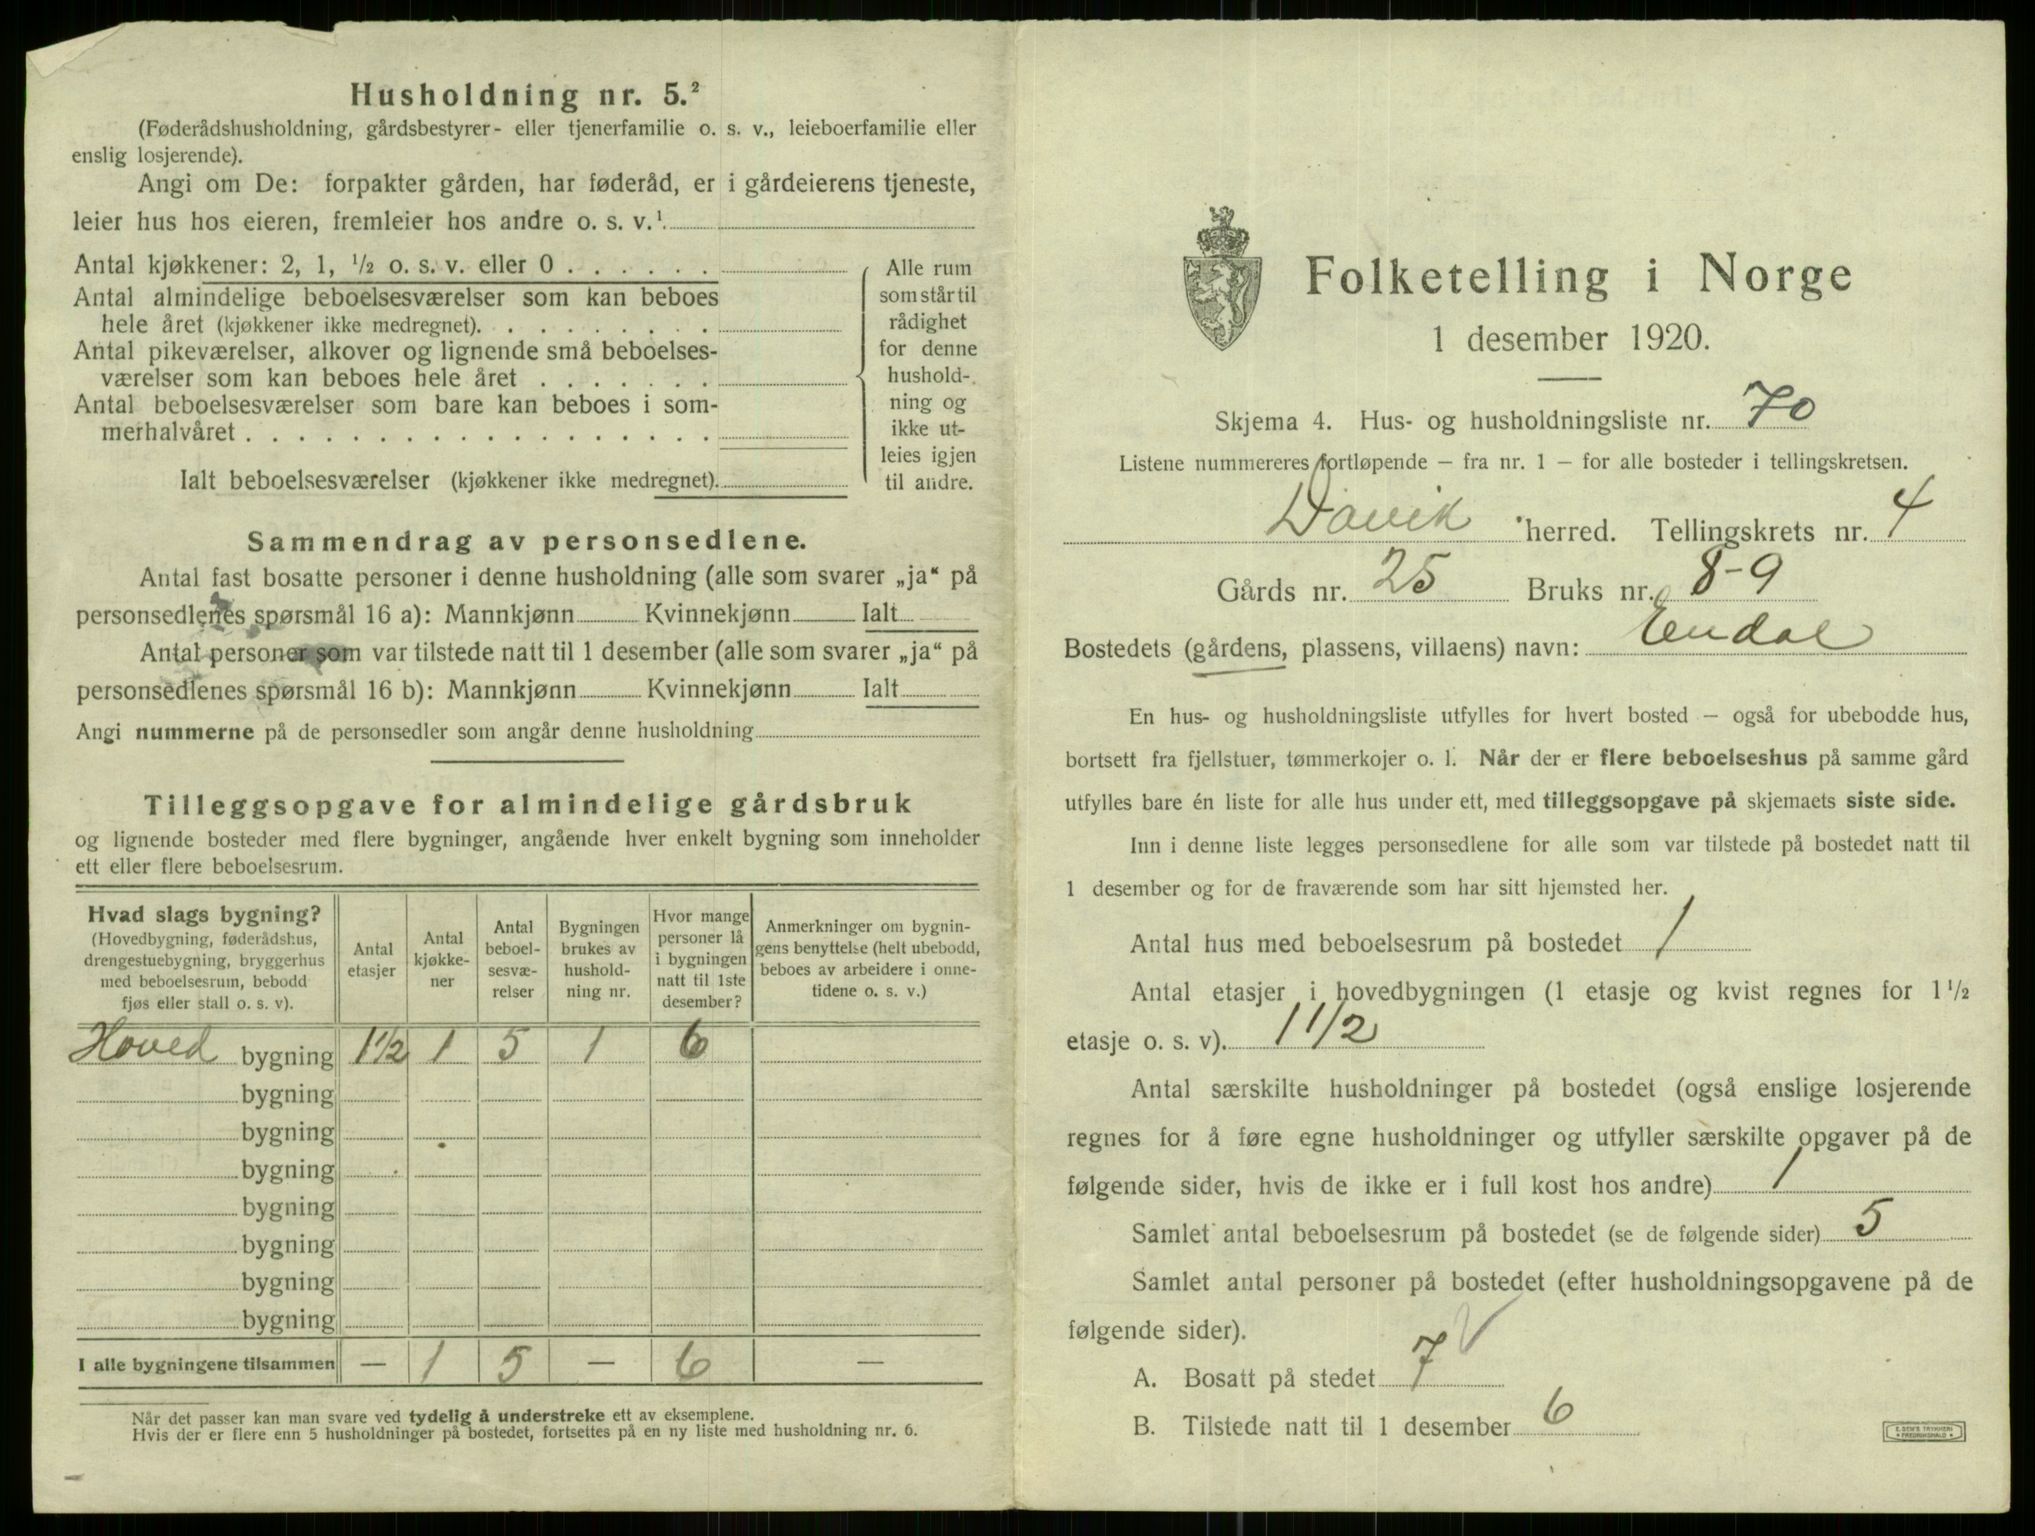 Husholdning nr. 5.²
(Føderådshusholdning, gårdsbestyrer- eller tjenerfamilie o. s. v., leieboerfamilie eller
enslig losjerende).
Angi om De: forpakter gården, har føderåd, er i gårdeierens tjeneste,
leier hus hos eieren, fremleier hos andre o. s. v.¹
Antal kjøkkener: 2, 1, ½ o. s. v. eller 0 . . . . . .
Antal almindelige beboelsesværelser som kan beboes
hele året (kjøkkener ikke medregnet). . . . . . . . .
Antal pikeværelser, alkover og lignende små beboelses-
værelser som kan beboes hele året . . . . . . .
Antal beboelsesværelser som bare kan beboes i som-
merhalvåret . . . . . . . . . . . . . . . . . .
Ialt beboelsesværelser (kjøkkener ikke medregnet).
Alle rum
som står til
rådighet
for denne
hushold-
ning og
ikke ut-
leies igjen
til andre.
Sammendrag av personsedlene.
Antal fast bosatte personer i denne husholdning (alle som svarer „ja“ på
personsedlenes spørsmål 16 a): Mannkjønn Kvinnekjønn Ialt
Antal personer som var tilstede natt til 1 desember (alle som svarer „ja“ på
personsedlenes spørsmål 16 b): Mannkjønn Kvinnekjønn Ialt
Angi nummerne på de personsedler som angår denne husholdning
Tilleggsopgave for almindelige gårdsbruk
og lignende bosteder med flere bygninger, angående hver enkelt bygning som inneholder
ett eller flere beboelsesrum.
Hvad slags bygning?
(Hovedbygning, føderådshus,
drengestuebygning, bryggerhus
med beboelsesrum, bebodd
fjøs eller stall o. s. v).
Antal
etasjer
Antal
kjøkke-
ner
Antal
beboel-
sesvæ-
relser
Bygningen
brukes av
hushold-
ning nr.
Hvor mange
personer lå
i bygningen
natt til 1ste
desember?
Anmerkninger om bygnin-
gens benyttelse (helt ubebodd,
beboes av arbeidere i onne-
tidene o. s. v.)
Hoved bygning 1½ 1 5 1 6
bygning
bygning
bygning
bygning
bygning
bygning
bygning
I alle bygningene tilsammen — 1 5 — 6 —
Når det passer kan man svare ved tydelig å understreke ett av eksemplene.
Hvis der er flere enn 5 husholdninger på bostedet, fortsettes på en ny liste med husholdning nr. 6.
Folketelling i Norge
1 desember 1920.
Skjema 4. Hus- og husholdningsliste nr. 70
Listene nummereres fortløpende — fra nr. 1 — for alle bosteder i tellingskretsen.
Davik herred. Tellingskrets nr. 4
Gårds nr. 25 Bruks nr. 8-9
Bostedets (gårdens, plassens, villaens) navn: Endal
En hus- og husholdningsliste utfylles for hvert bosted — også for ubebodde hus,
bortsett fra fjellstuer, tømmerkojer o. l. Når der er flere beboelseshus på samme gård
utfylles bare én liste for alle hus under ett, med tilleggsopgave på skjemaets siste side.
Inn i denne liste legges personsedlene for alle som var tilstede på bostedet natt til
1 desember og for de fraværende som har sitt hjemsted her.
Antal hus med beboelsesrum på bostedet 1
Antal etasjer i hovedbygningen (1 etasje og kvist regnes for 1 ½
etasje o. s. v). 1 1/2
Antal særskilte husholdninger på bostedet (også enslige losjerende
regnes for å føre egne husholdninger og utfyller særskilte opgaver på de
følgende sider, hvis de ikke er i full kost hos andre) 1
Samlet antal beboelsesrum på bostedet (se de følgende sider) 5
Samlet antal personer på bostedet (efter husholdningsopgavene på de
følgende sider).
A. Bosatt på stedet 7
B. Tilstede natt til 1 desember 6